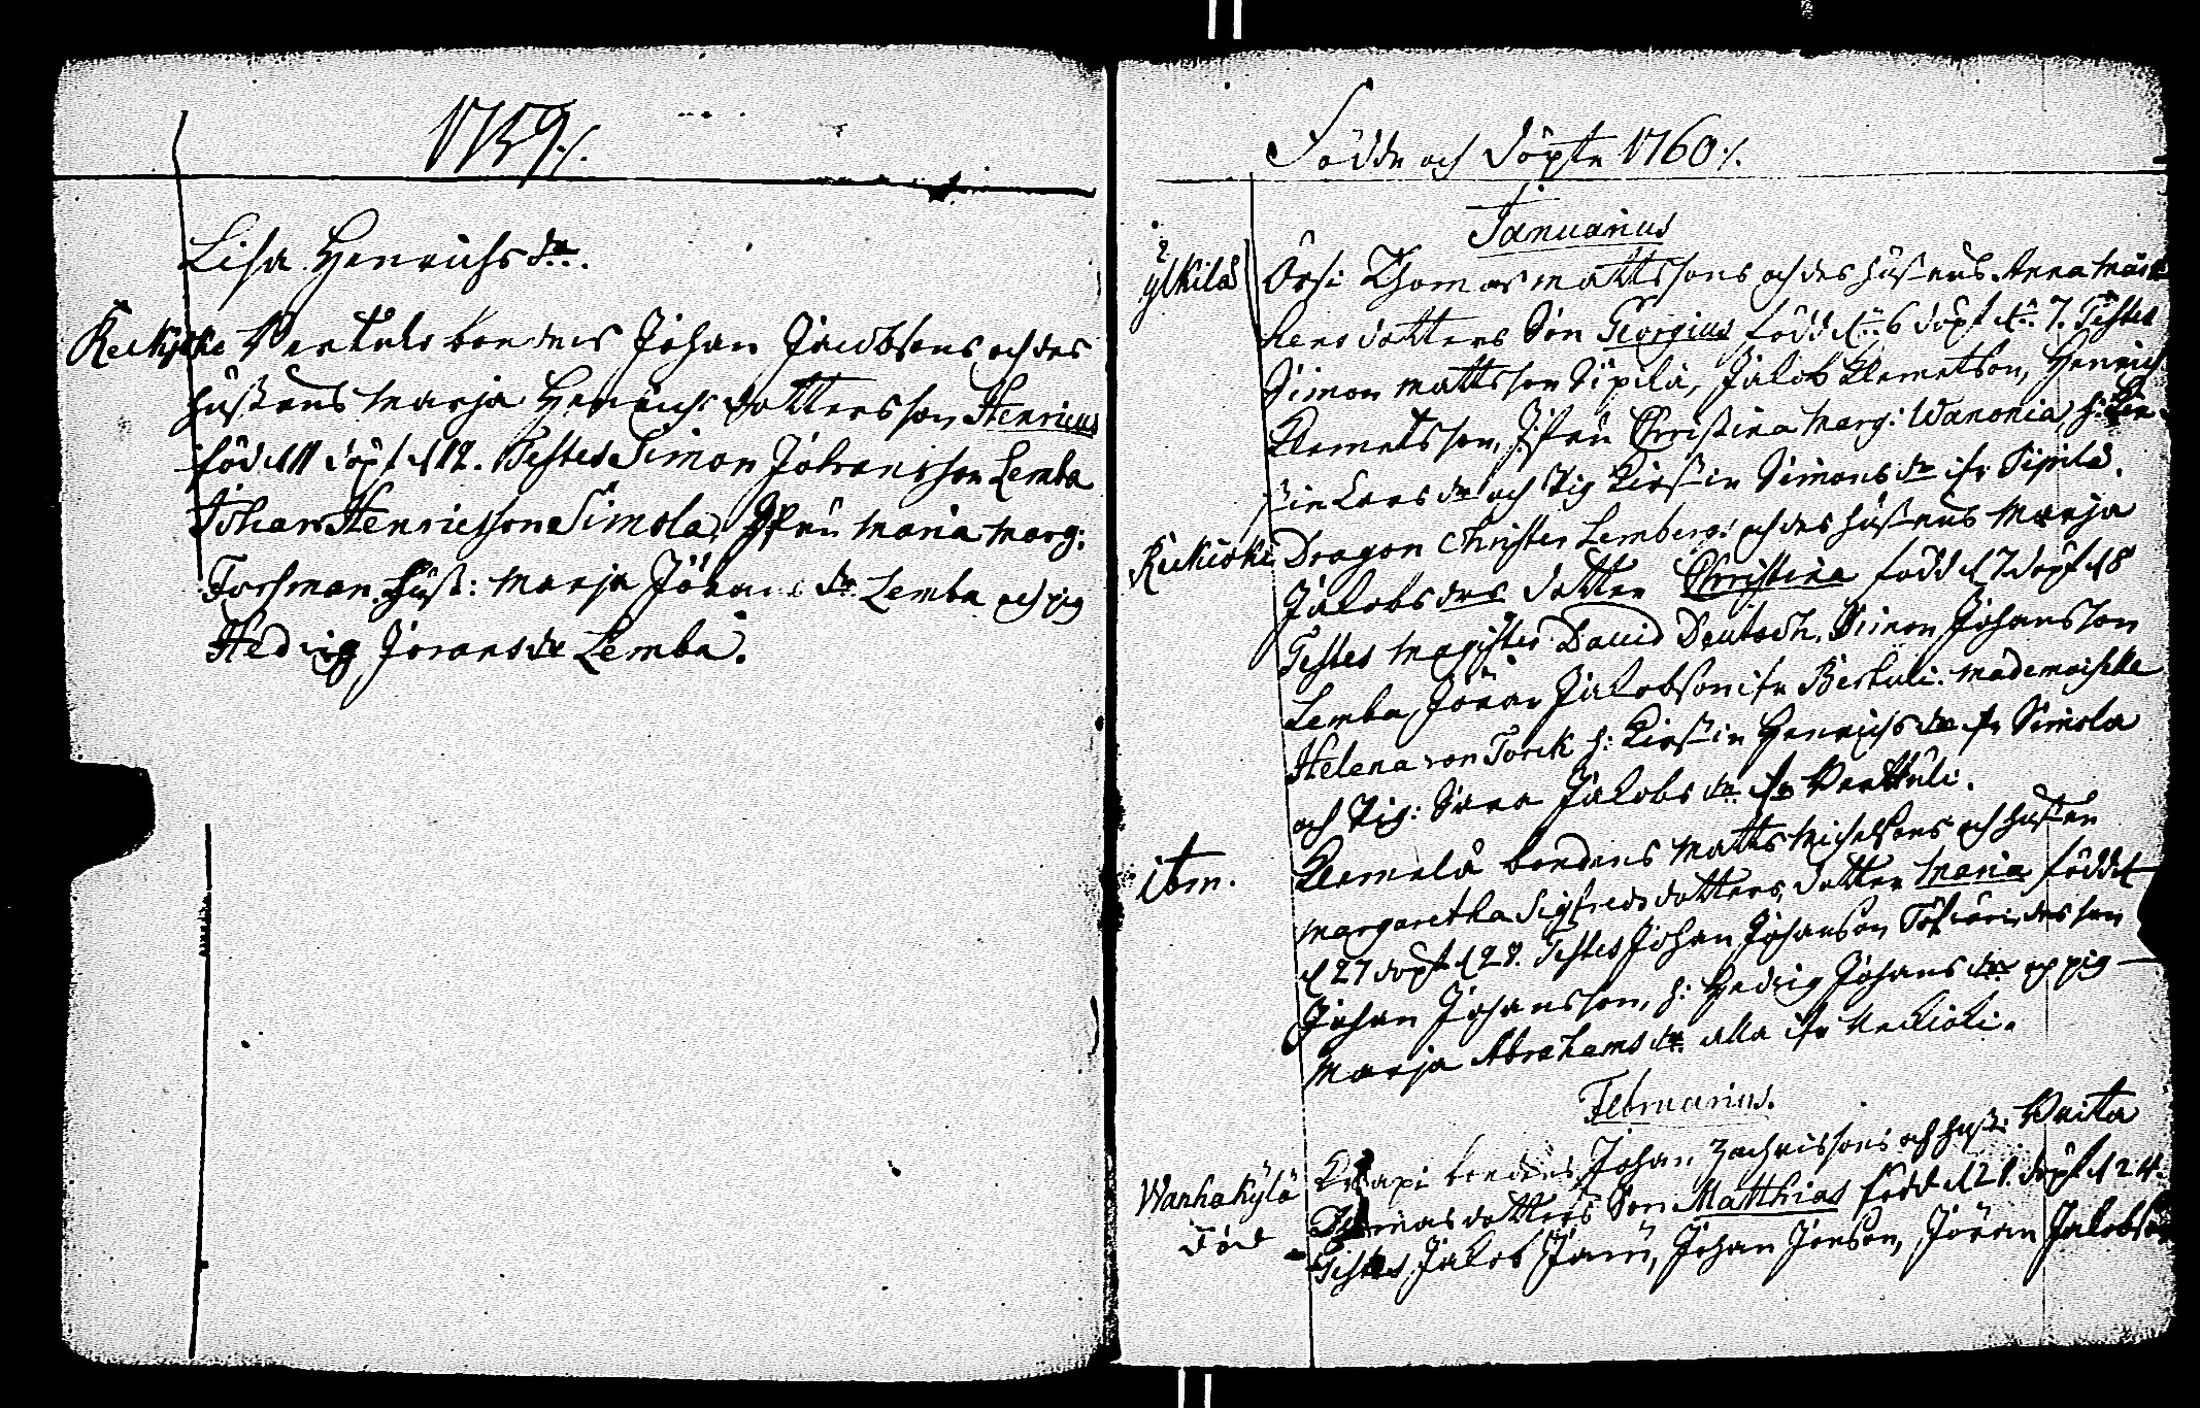 1759 ./.
Lisa Henrichs dr.
Keckyske Pertulr bondens Johan Jacobsons och des
hustrus Marja Henrichs dotters son Henricus
född d 11 döpt d 12. Testes Simon Johansson Lemba
Johan Henricsson Simola, Jfru Maria Marg:
Forsman. Hust: Marja Jörans dr Lemba och pig
Hedvig Jörans dr Lemba.
Födde och döpte 1760 ./.
Januarius
Ylkilä Orsi Thomas Mattssons och des hustrus Anna
dotters Son Georgius född d: 6 döpt d: 7. Testes
Simon Mattsson Sipilä, Jakob Klemetson, Henrich
Klemetsson, Jfru Christina Marg: Wanonia, h:
Lars dr och Pig Kirstin Simons dr ifr Sipilä.
Dragon Christer Lemberg: och des hustrus Marja
Jakobs des dotter Christina född d 7 döpt d 8
Testes Magister David Deutsch, Simon Johansson
Lemba, Jöran Jakobson ifr Bertuli. Mademoiselle
Helena von Torck h: Kirstin Henrichs dr ifr Simola
och Pig: Jakobs dr ifr Perttuli.
itm. Klemelä bondens Matts Michelsons och hustru
Margaretha Sigfreds dotters, dotter Maria född
d 27 döpt d 28. Testes Johan Johanson des son
Johan Johansson, h: Hedvig Johans dr och pig
Marja Abrahams dr alla ifr Keckioki.
Februarius.
Wanhakylä bondens Johan Zachrissons och hust: Brita
Thomas dotters Son Matthias född d 21. döpt d 24.
Testes Jakob Johan Jönson, Jöran Jakobson